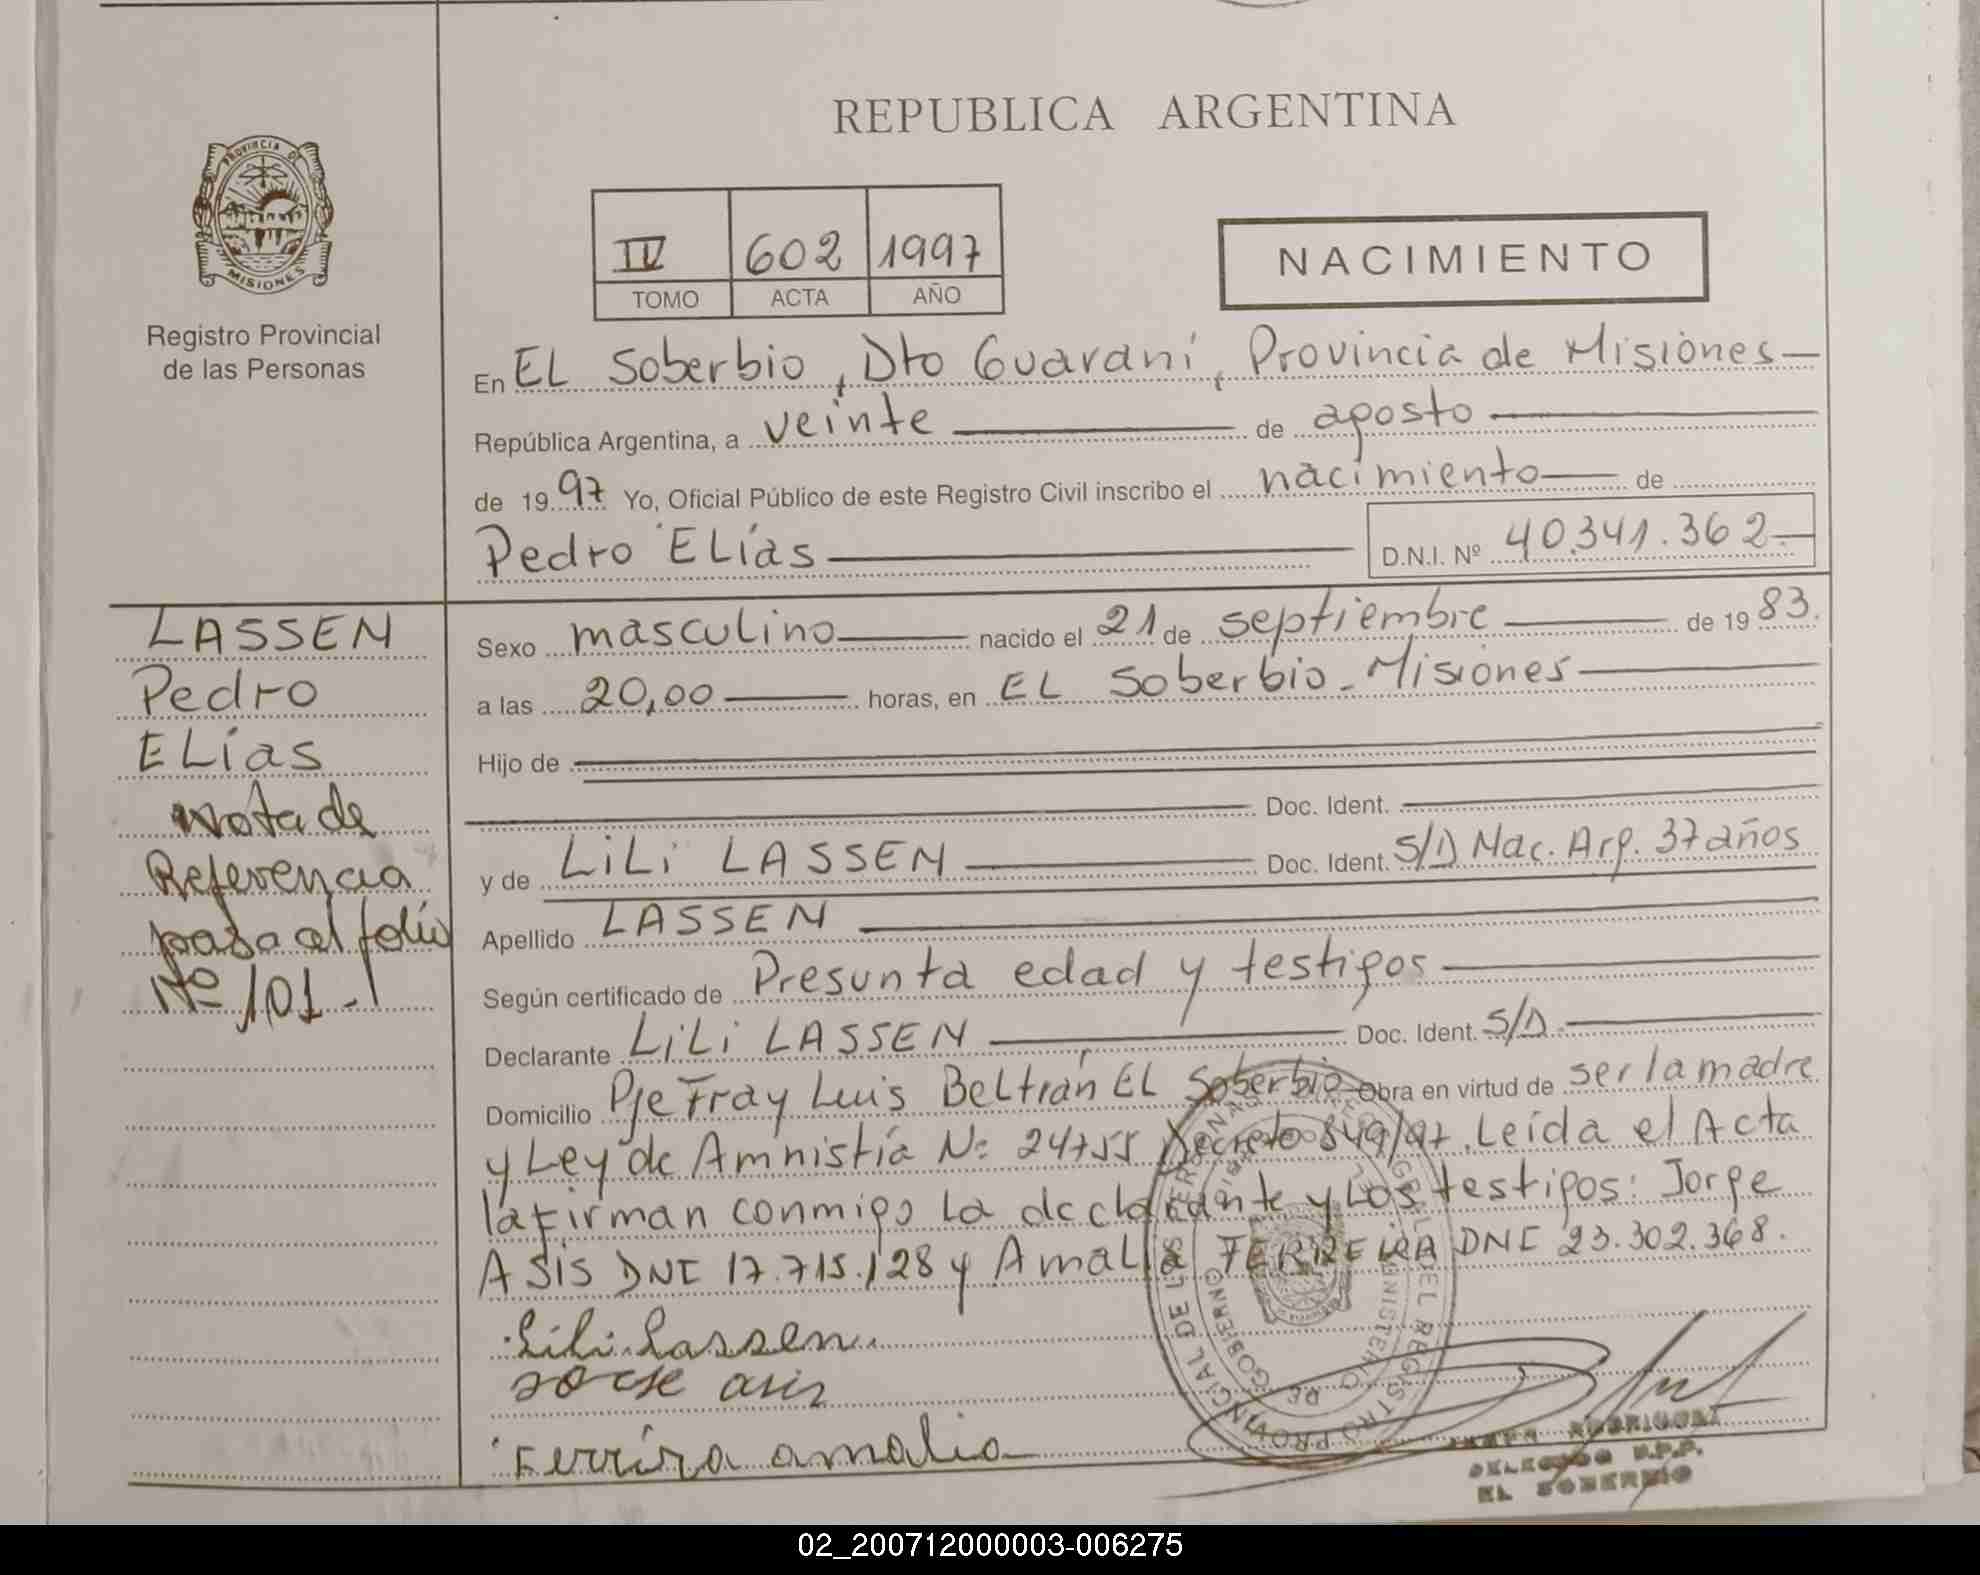 REPUBLICA ARGENTINA
PROVINCIA DE
MISIONES
Registro Provincial
de las Personas
IV 602 1997
TOMO ACTA AÑO
NACIMIENTO
En EL Soberbio, Dto Guaraní, Provincia de Misiones
República Argentina, a veinte de agosto
de 1997 Yo, Oficial Público de este Registro Civil inscribo el nacimiento de
Pedro ELías D.N.I. Nº 40.341.362
LASSEN
Pedro
ELías
Nota de
Referencia
pasa al folio
Nº 101
Sexo masculino nacido el 21 de septiembre de 1983.
a las 20,00 horas, en EL Soberbio - Misiones
Hijo de
Doc. Ident.
y de LiLi LASSEN Doc. Ident. S/D Nac. Arg. 37 años
Apellido LASSEN
Según certificado de Presunta edad y testigos
Declarante LiLi LASSEN Doc. Ident. S/D
Domicilio Pje Fray Luis Beltrán EL Soberbio Obra en virtud de ser la madre
y Ley de Amnistía Nº 24755 Decreto 849/97. Leída el Acta
la firman conmigo la declarante y Los testigos: Jorge
ASIS DNI 17.715.128 y Amalia FERREIRA DNI 23.302.368.
Lili Lassen
Jorge asis
Ferrira amalia
REGISTRO PROVINCIAL DE LAS PERSONAS
MINISTERIO DE GOBIERNO
RODRIGUEZ
DELEGADO R.P.P.
EL SOBERBIO
02_200712000003-006275